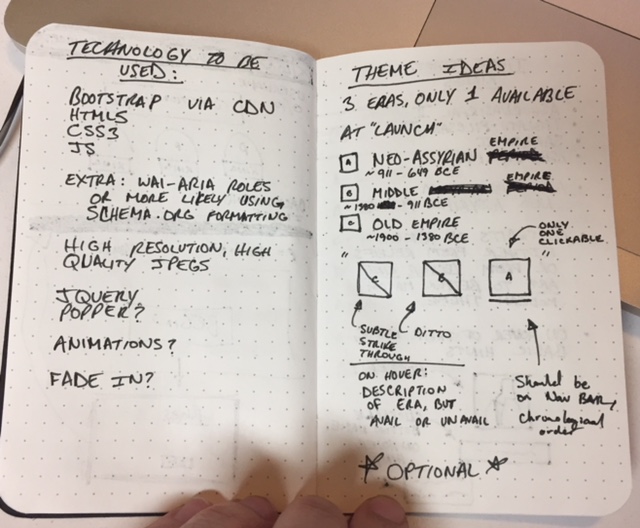 TECHNOLOGY TO BE
USED:
BOOTSTRAP VIA CDN
HTML5
CSS3
JS
EXTRA: WAI-ARIA ROLES
OR MORE LIKELY USING
SCHEMA.ORG FORMATTING
HIGH RESOLUTION, HIGH
QUALITY JPEGS
JQUERY
POPPER?
ANIMATIONS?
FADE IN?
THEME IDEAS
3 ERAS, ONLY 1 AVAILABLE
AT "LAUNCH"
A NEO-ASSYRIAN EMPIRE
~911-649 BCE
B MIDDLE EMPIRE
~1380 - 911 BCE
C OLD EMPIRE
~1900 - 1380 BCE
ONLY
ONE
CLICKABLE
" C B A "
SUBTLE
STRIKE
THROUGH
DITTO
ON HOVER:
DESCRIPTION
OF ERA, BUT
AVAIL OR UNAVAIL
Should be
on NAV BAR,
chronological
order
* OPTIONAL *